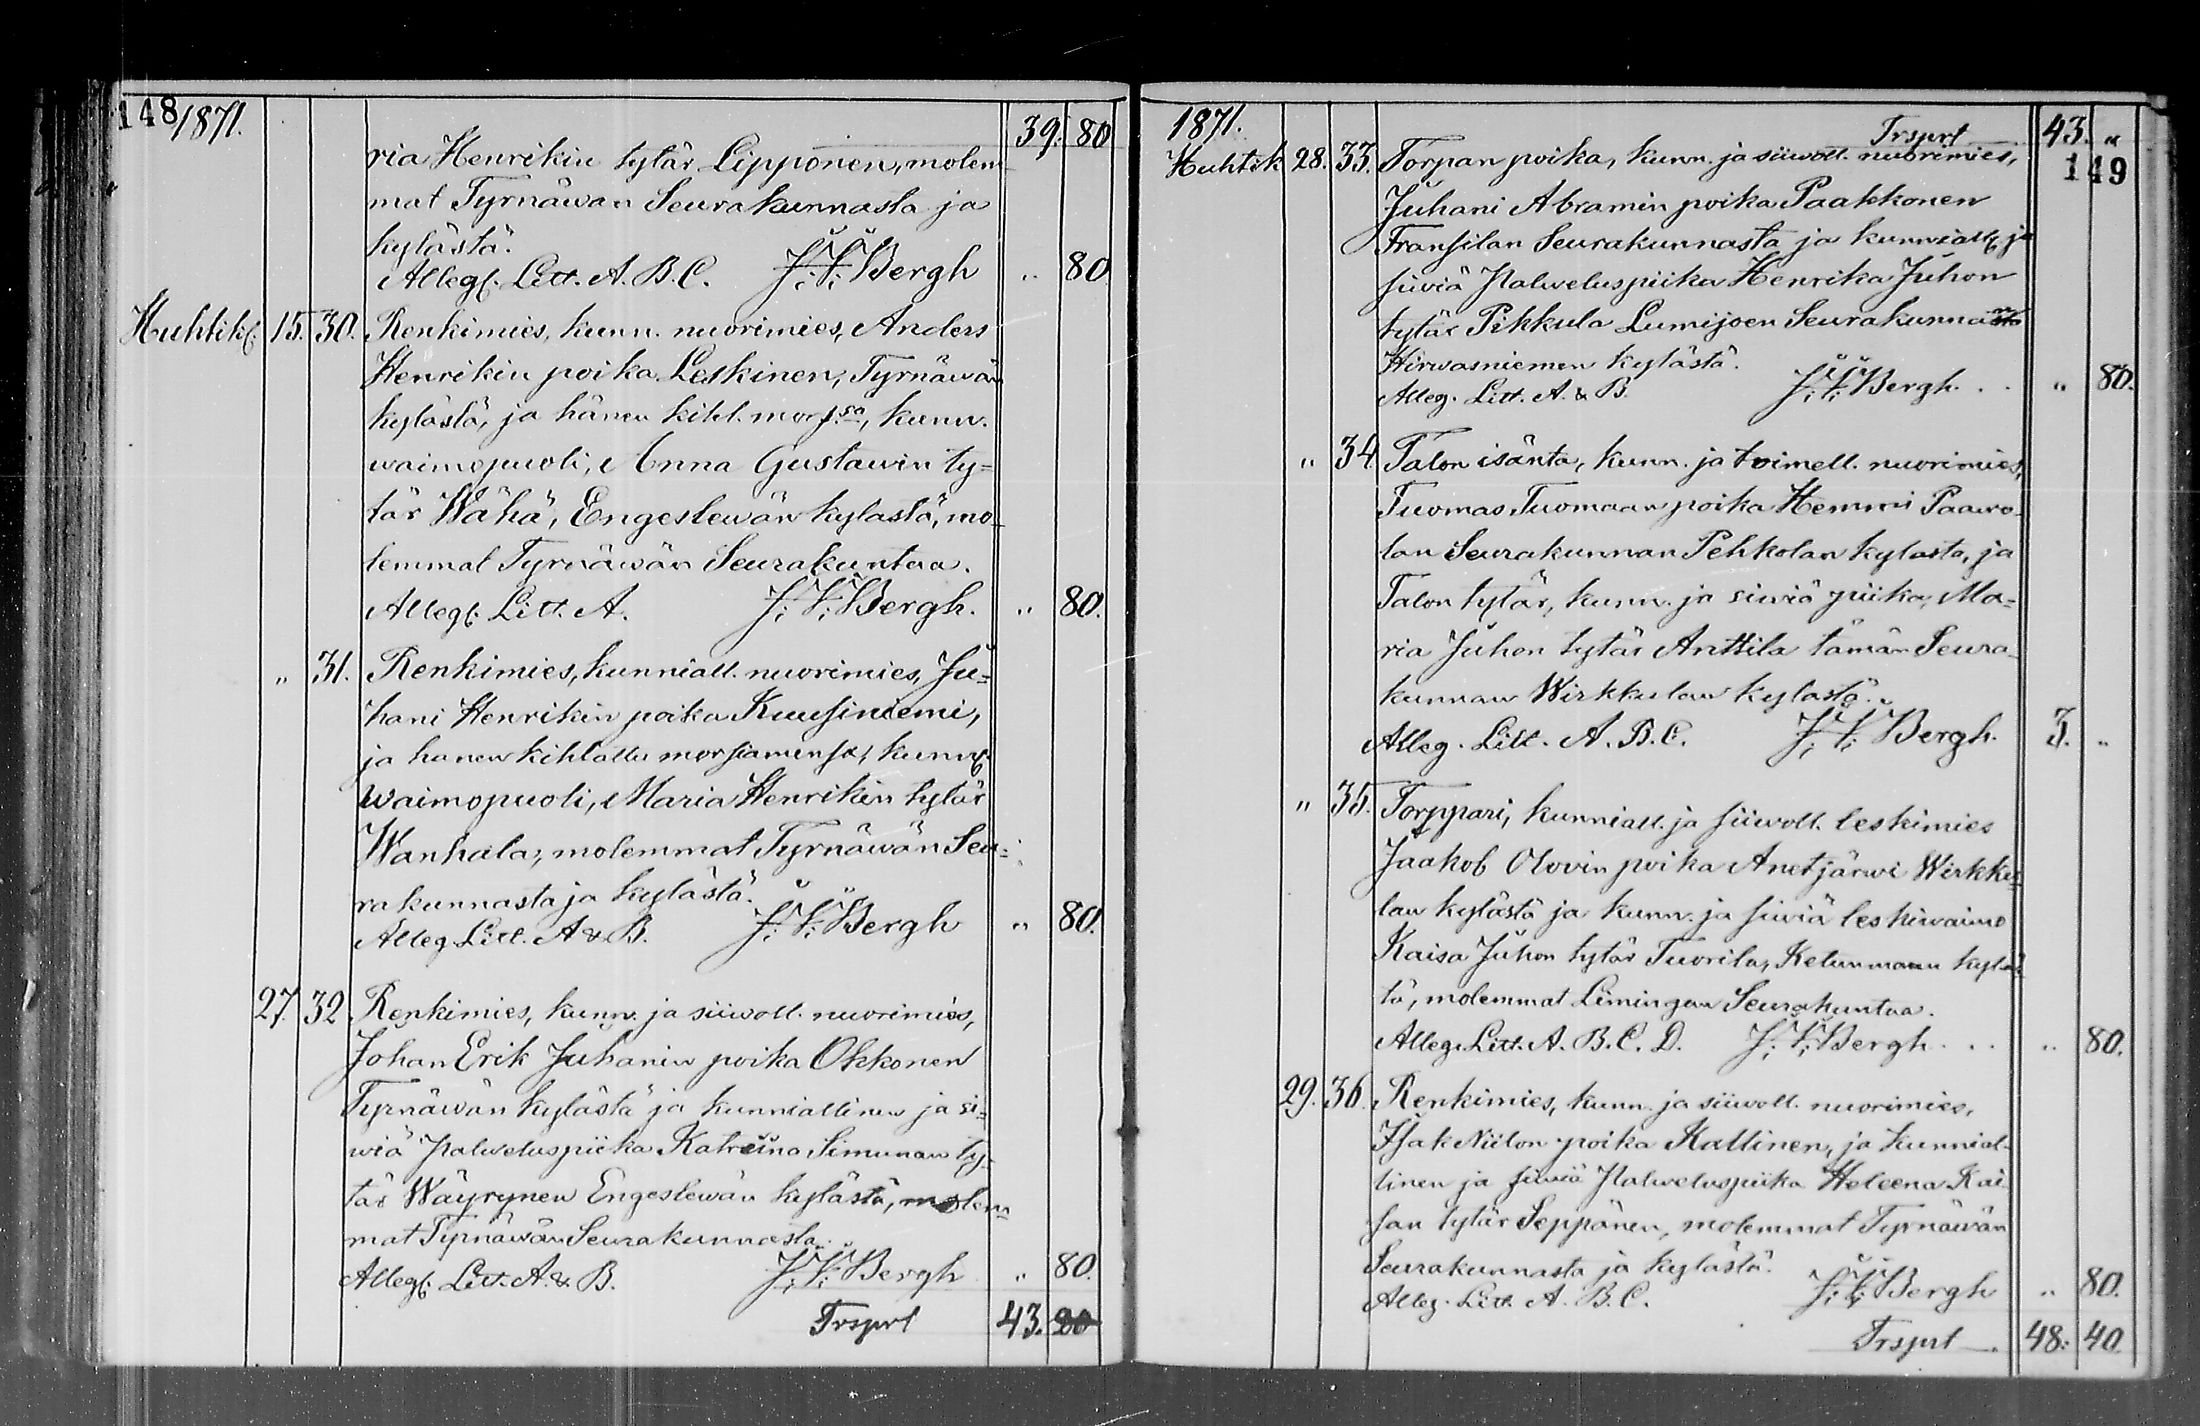 148/1871. 39. 80
ria Henrikin tytär Lipponen, molem-
mat Tyrnäwän Seurakunnasta ja
kylästä.
Alleg. Litt. A. B. C. J. F. Bergh „ 80
Huhtik. 15. 30. Renkimies, kunn. nuorimies, Anders
Henrikin poika Leskinen, Tyrnäwän
kylästä, ja hänen kihl. mors:sa, kunn.
waimopuoli, Anna Gustawin ty=
tär Wähä, Engeslewän kylästä, mo-
lemmat Tyrnäwän Seurakuntaa.
Alleg. Litt. A. J. F. Bergh. „ 80.
„ 31. Renkimies, kunniall. nuorimies, Ju=
hani Henrikin poika Kuusiniemi,
ja hanen kihlattu morsiamensa, kunn.
waimopuoli, Maria Henrikin tytär
Wanhala, molemmat Tyrnäwän Seu=
rakunnasta ja kylästä.
Alleg. Litt. A & B. J. F. Bergh „ 80.
27. 32 Renkimies, kunn. ja siiwoll. nuorimies,
Johan Erik Juhanin poika Okkonen
Tyrnäwän kylästä ja kunniallinen ja si=
wiä Palweluspiika Katriina Simunan ty-
tär Wäyrynen Engeslewän kylästä, molem-
mat Tyrnäwän Seurakunnasta.
Alleg. Litt. A. & B. J. F. Bergh „ 80.
Trsprt 43. 20
1871. Trsprt 43. „
Huhtik 28. 33. Torpan poika, kunn. ja siiwoll. nuorimies, 149
Juhani Abramin poika Paakkonen
Fransilan Seurakunnasta ja kunniall. ja
siiviä Palweluspiika Henrika Juhon
tytär Pikkula Lumijoen Seurakunnan
Hirwasniemen kylästä.
Alleg. Litt. A. & B. J. F. Bergh. . . „ 80.
„ 34. Talon isäntä, kunn. ja toimell. nuorimies,
Tuomas Tuomaan poika Hemmi Paawo-
lan Seurakunnan Pehkolan kylasta, ja
Talon tytär, kunn. ja siwiä piika, Ma=
ria Juhon tytär Anttila tämän Seura-
kunnan Wirkkulan kylästä.
Alleg. Litt. A. B. C. J. F. Bergh. 3. „
„ 35. Torppari, kunniall. ja siiwoll. leskimies
Jaakob Olovin poika Anetjärwi Wirkku-
lan kylästä ja kunn. ja siwiä leskiwaimo
Kaisa Juhon tytär Tuorila, Ketunmaan kyläs
tä, molemmat Limingan Seurakuntaa.
Alleg. Litt. A. B. C. D. J. F. Bergh . . . „ 80.
29. 36. Renkimies, kunn. ja siiwoll. nuorimies,
Isak Niilon poika Kallinen, ja kunnial-
linen ja siiwiä Palweluspiika Heleena Kai
san tytär Seppänen, molemmat Tyrnäwän
Seurakunnasta ja kylästä.
Alleg. Litt. A. B. C. J. F. Bergh „ 80.
Trsprt. 48. 40.